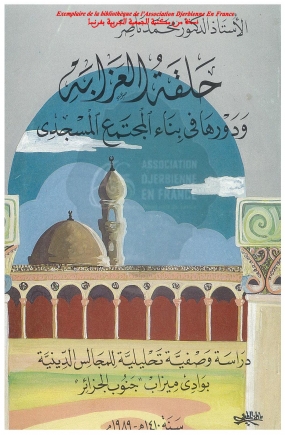 Exemplaire de la bibliothèque de l'Association Djerbienne En France
نسخة من مكتبة الجمعية الجربية بفرنسا
الأستاذ الدكتور محمد ناصر
حلقة العزابة
ودورها في بناء المجتمع المسجدي
ASSOCIATION
DJERBIENNE
EN FRANCE
دراسة وصفية تحليلية للمجالس الدينية
بوادي ميزاب "جنوب الجزائر"
سنة ١٤١٠هـ - ١٩٨٩م